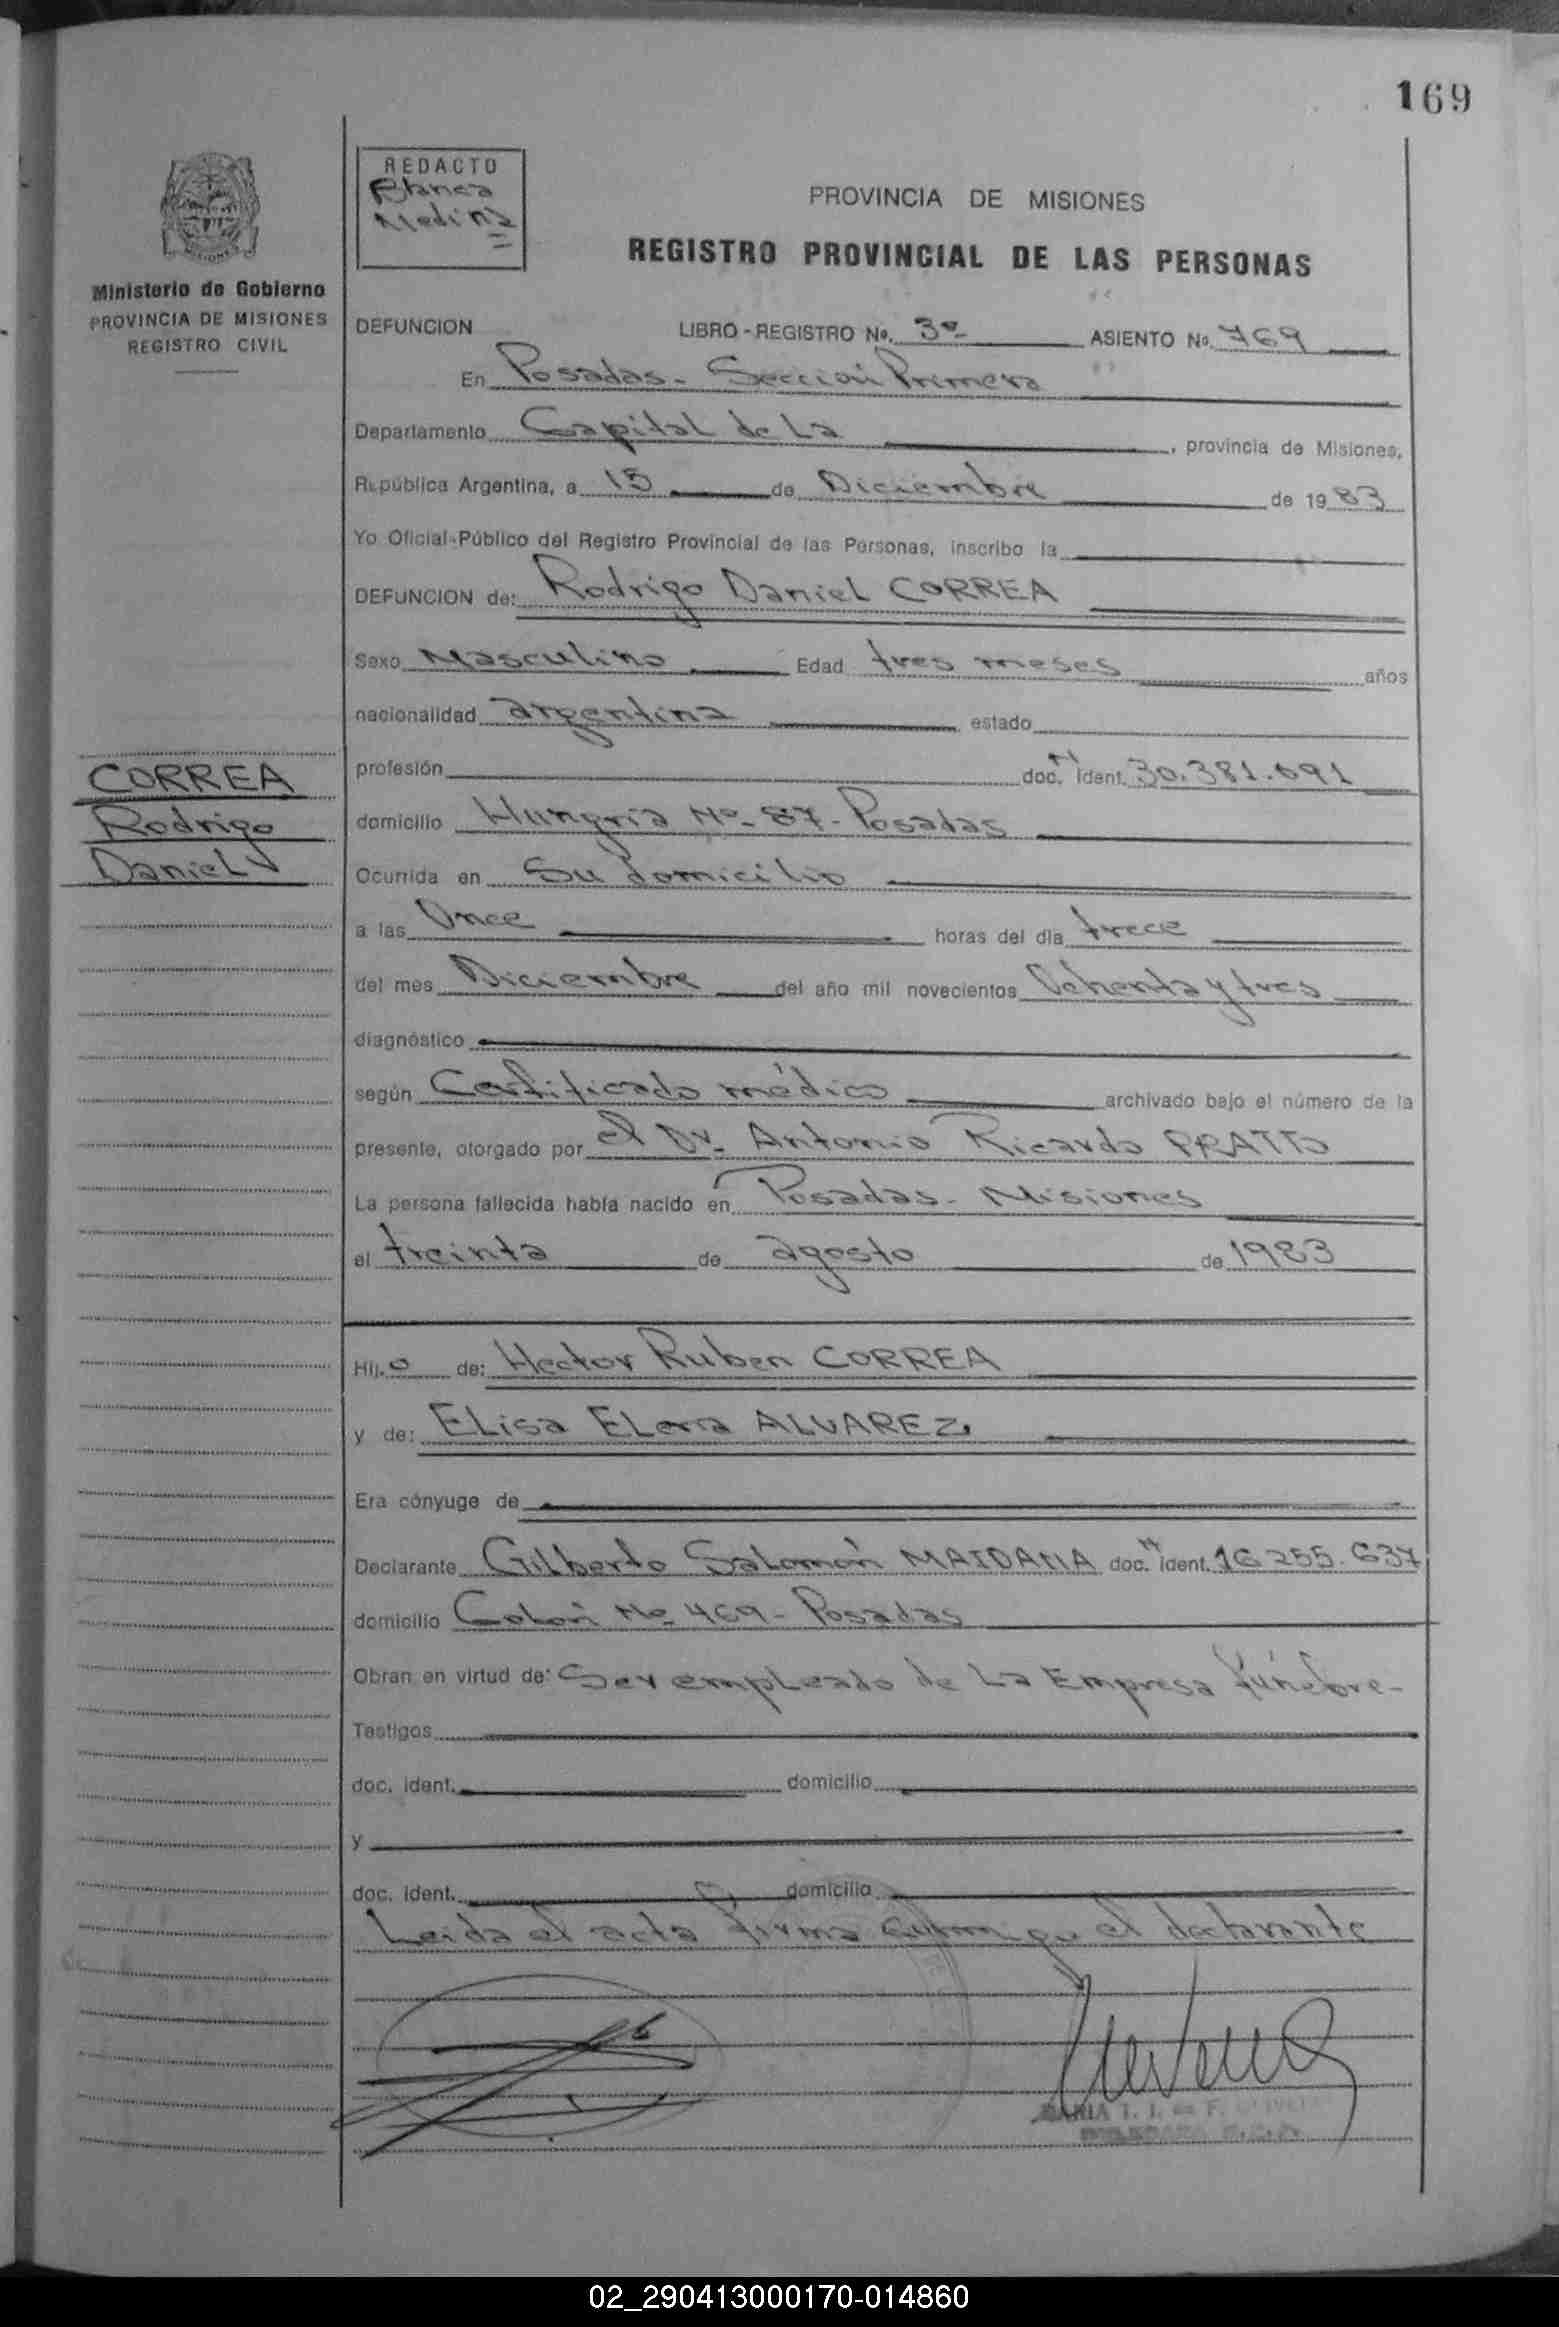 169
REDACTO
Blanca
Medina
PROVINCIA DE MISIONES
REGISTRO PROVINCIAL DE LAS PERSONAS
Ministerio de Gobierno
PROVINCIA DE MISIONES
REGISTRO CIVIL
DEFUNCION LIBRO-REGISTRO No. 3º ASIENTO No. 769
En Posadas - Sección Primera
Departamento Capital de La , provincia de Misiones,
República Argentina, a 15 de Diciembre de 1983
Yo Oficial-Público del Registro Provincial de las Personas, inscribo la
DEFUNCION de: Rodrigo Daniel CORREA
Sexo Masculino Edad tres meses años
nacionalidad argentina estado
profesión doc. N ident. 30.381.691
CORREA
Rodrigo
Daniel
domicilio Hungría Nº 87 - Posadas
Ocurrida en Su domicilio
a las Once horas del día trece
del mes Diciembre del año mil novecientos Ochenta y tres
diagnóstico
según Certificado médico archivado bajo el número de la
presente, otorgado por el Dr. Antonio Ricardo PRATTO
La persona fallecida había nacido en Posadas - Misiones
el treinta de agosto de 1983
Hij.o de: Hector Ruben CORREA
y de: Elisa Elena ALVAREZ
Era cónyuge de
Declarante Gilberto Salomón MAIDANA doc. N ident. 16.255.637
domicilio Colón Nº 469 - Posadas
Obran en virtud de: Ser empleado de La Empresa fúnebre -
Testigos
doc. ident. domicilio
y
doc. ident. domicilio
Leida el acta firma conmigo el declarante
MARIA T. I. de F.
DELEGADA
02_290413000170-014860